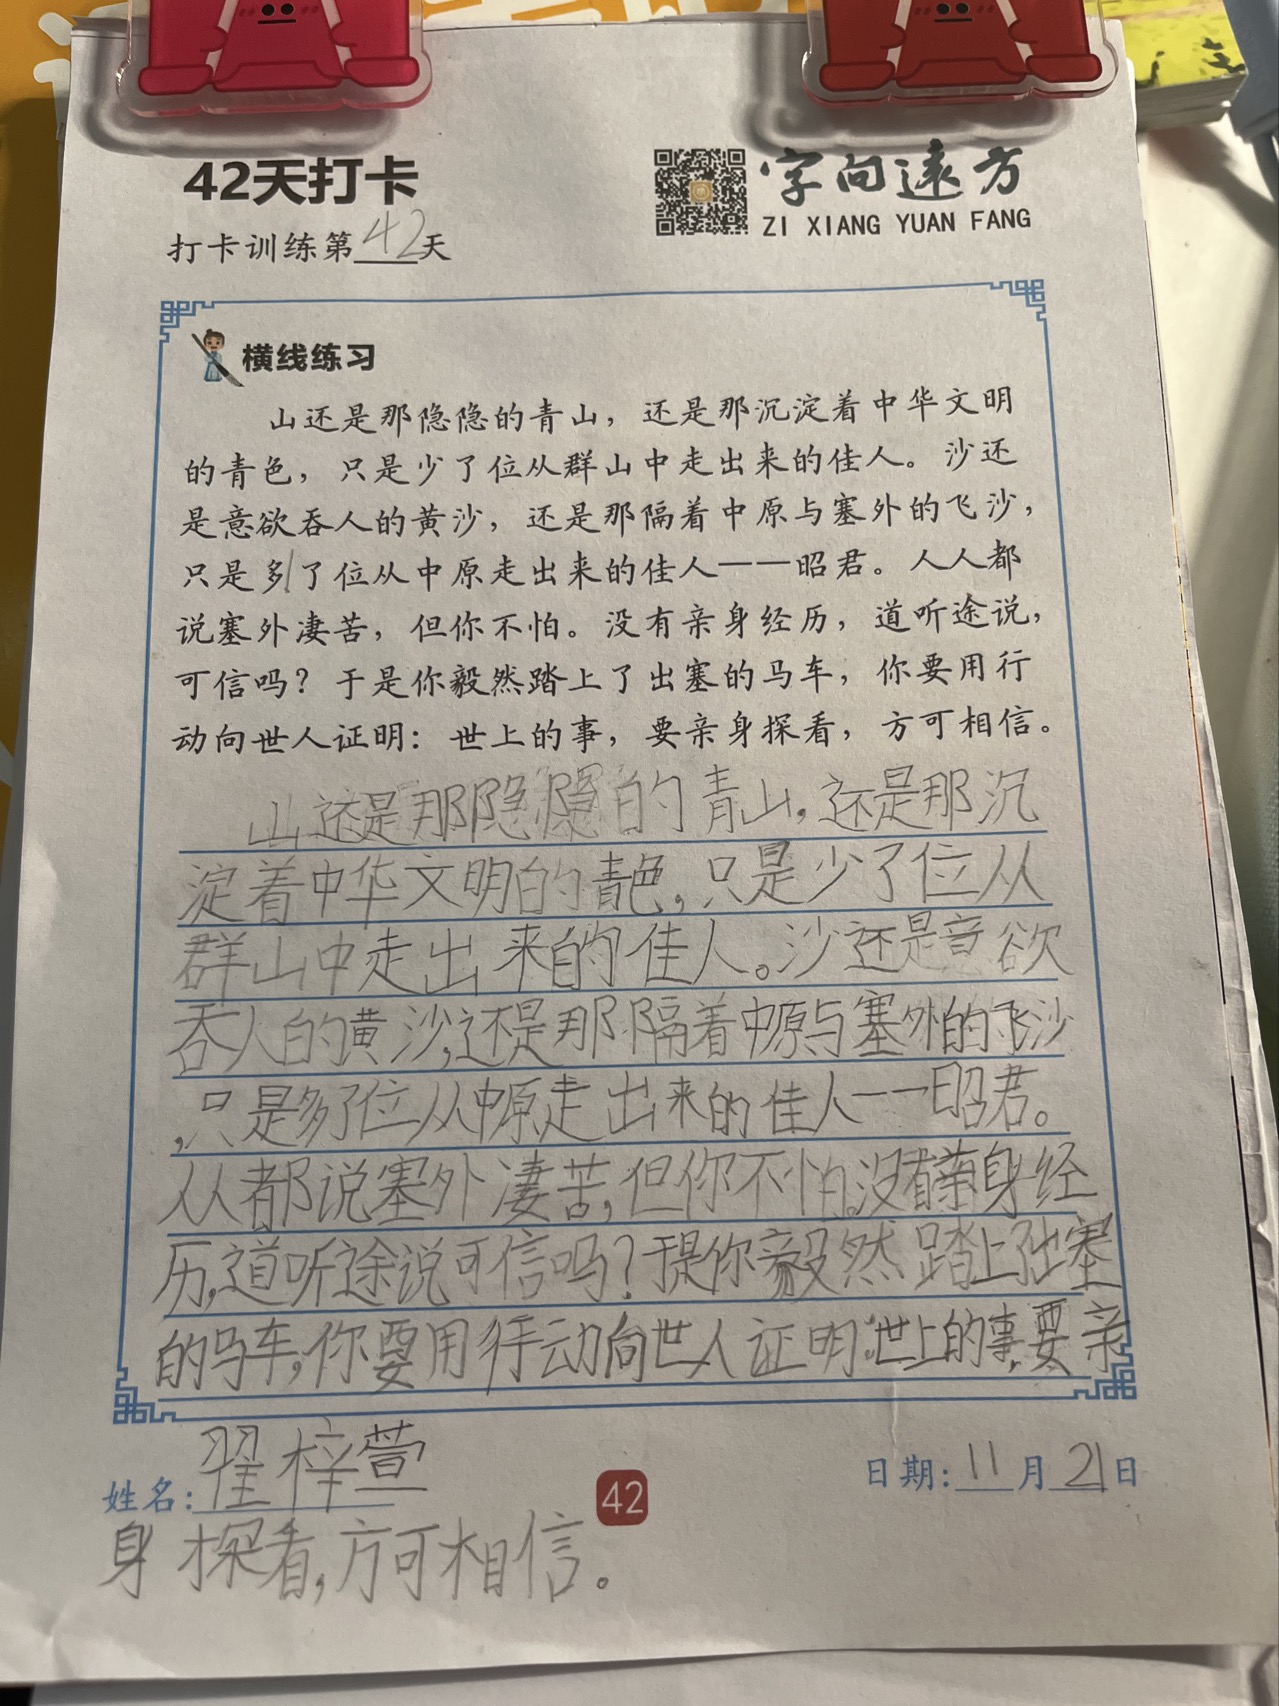 42天打卡
字向远方
ZI XIANG YUAN FANG
打卡训练第42天
横线练习
山还是那隐隐的青山，还是那沉淀着中华文明
的青色，只是少了位从群山中走出来的佳人。沙还
是意欲吞人的黄沙，还是那隔着中原与塞外的飞沙，
只是多了位从中原走出来的佳人——昭君。人人都
说塞外凄苦，但你不怕。没有亲身经历，道听途说，
可信吗？于是你毅然踏上了出塞的马车，你要用行
动向世人证明：世上的事，要亲身探看，方可相信。
山还是那隐隐的青山，还是那沉
淀着中华文明的青色，只是少了位从
群山中走出来的佳人。沙还是意欲
吞人的黄沙，还是那隔着中原与塞外的飞沙
，只是多了位从中原走出来的佳人——昭君。
人人都说塞外凄苦，但你不怕。没有亲身经
历，道听途说可信吗？于是你毅然踏上了出塞
的马车，你要用行动向世人证明：世上的事，要亲
姓名：翟梓萱
42
日期：11月21日
身探看，方可相信。